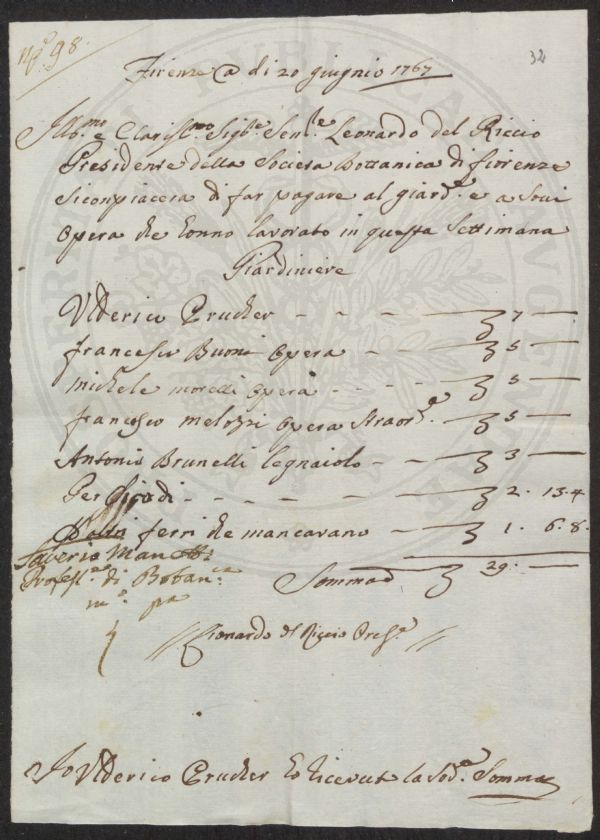 n.º 98.
32
Firenze @ di 20 giugnio 1767
Ill.mo e Clariss.mo Sig.re Sen.re Leonardo del Riccio
Presidente della Societa Bottanica di fiorenze
Si conpiacera di far pagare al giard.e e a Soui
Opera che honno lavorato in questa Settimana
Giardiniere
Vlderico Prucher - - - 7 —
francesco Buoni Opera - - 5 —
michele moretti opera - - - 5 —
francesco melozzi opera Straord.a 5 —
Antonio Brunelli legnaiolo - - 3 —
Per Chiodi - - - - - 2. 13.4
ferri che mancavano — 1. 6.8.
Saverio Manetti
Profess.re di Botan.ca
m.o pa
Somma 29. —
// Lionardo del Riccio Pres.e //
Io Vlderico Prucher ho ricevuto la sod.a Somma